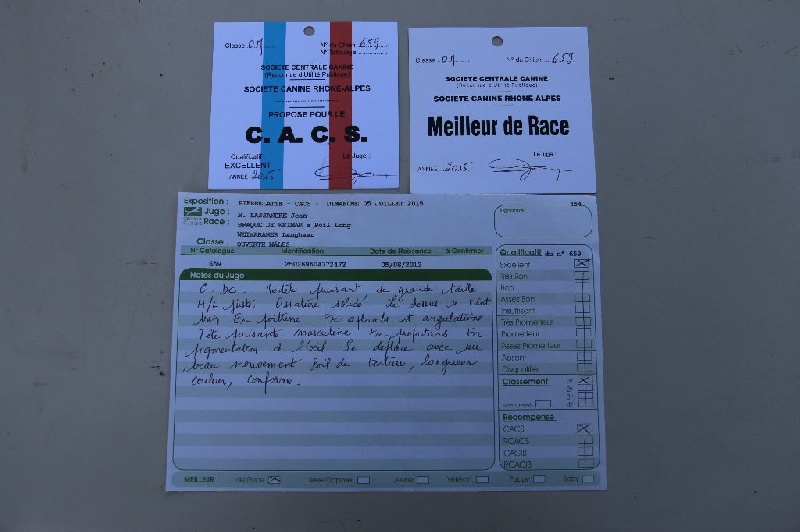 Classe : O.M. N° du Chien 659
N° Tatouage
SOCIETE CENTRALE CANINE
(Reconnue d'Utilité Publique)
SOCIETE CANINE RHONE-ALPES
PROPOSE POUR LE
C. A. C. S.
Qualificatif Le Juge :
EXCELLENT
ANNEE 2015
Classe : O.M. N° du Chien 659
SOCIETE CENTRALE CANINE
(Reconnue d'Utilité Publique)
SOCIETE CANINE RHONE-ALPES
Meilleur de Race
Le Juge :
ANNEE 2015
Exposition : PIERRELATTE - CACS - DIMANCHE 05 JUILLET 2015
Juge : M. Jean
Race : BRAQUE DE WEIMAR à Poil Long
WEIMARANER Langhaar
Classe : OUVERTE MÂLES
Signature
N° Catalogue Identification Date de Naissance à Confirmer
05/08/2012
Notes du Juge
puissant de grande taille
Ossature solide
et angulations
Tête puissante masculine proportions
pigmentation Se déplace avec un
beau mouvement Poil de texture, longueur
couleur, conforme.
Qualificatif du n° 659
Excellent
Très Bon
Bon
Assez Bon
Insuffisant
Très Prometteur
Prometteur
Assez Prometteur
Absent
Disqualifié
Classement
Non Classé
Récompense
CACS
RCACS
CACIB
RCACIB
MEILLEUR de Race Sexe Opposé Jeune Vétéran Puppy Baby